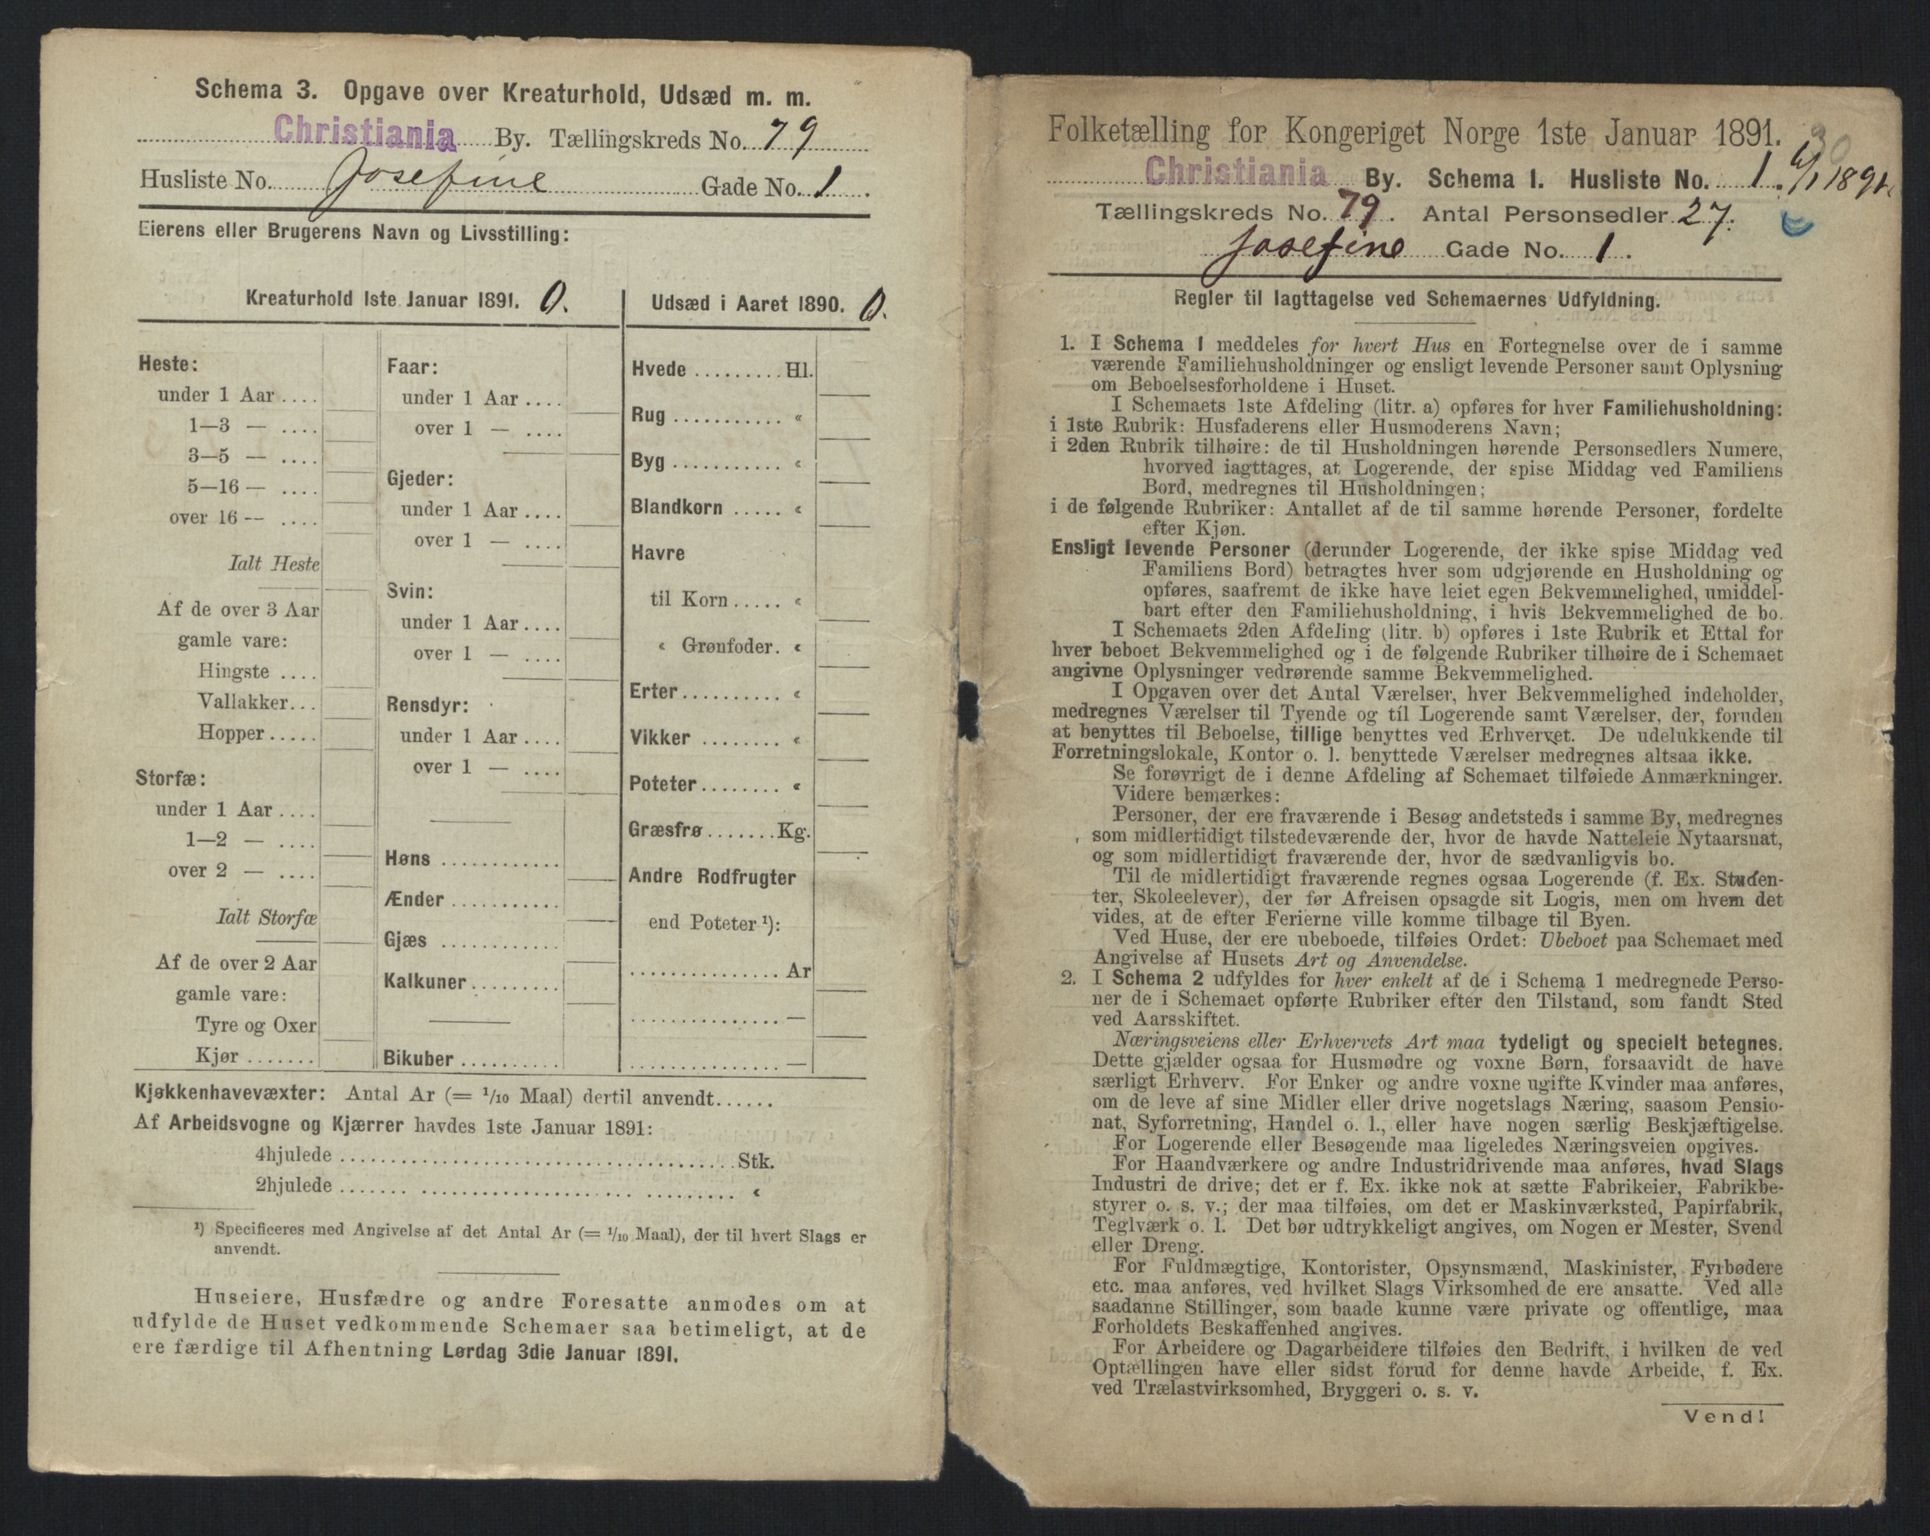 Schema 3. Opgave over Kreaturhold, Udsæd m. m.
Christiania By. Tællingskreds No. 79
Husliste No. Josefine Gade No. 1.
Eierens eller Brugerens Navn og Livsstilling:
Kreaturhold 1ste Januar 1891. 0.
Heste:
under 1 Aar ....
1—3 — ....
3—5 — ....
5—16 — ....
over 16 — ....
Ialt Heste
Af de over 3 Aar
gamle vare:
Hingste ....
Vallakker...
Hopper.....
Storfæ:
under 1 Aar ....
1—2 — ....
over 2 — ....
Ialt Storfæ
Af de over 2 Aar
gamle vare:
Tyre og Oxer
Kjør .......
Faar:
under 1 Aar ....
over 1 — ....
Gjeder:
under 1 Aar ....
over 1 — ....
Svin:
under 1 Aar ....
over 1 — ....
Rensdyr:
under 1 Aar ....
over 1 — ....
Høns ............
Ænder ...........
Gjæs ............
Kalkuner .........
Bikuber ..........
Udsæd i Aaret 1890. 0.
Hvede ......... Hl.
Rug ........... «
Byg ........... «
Blandkorn ..... «
Havre
til Korn ..... «
« Grønfoder. «
Erter .......... «
Vikker ........ «
Poteter ........ «
Græsfrø ....... Kg.
Andre Rodfrugter
end Poteter ¹):
............... Ar
............... —
............... —
Kjøkkenhavevæxter: Antal Ar (= 1/10 Maal) dertil anvendt......
Af Arbeidsvogne og Kjærrer havdes 1ste Januar 1891:
4hjulede ........................................ Stk.
2hjulede ........................................ «
¹) Specificeres med Angivelse af det Antal Ar (= 1/10 Maal), der til hvert Slags er
anvendt.
Huseiere, Husfædre og andre Foresatte anmodes om at
udfylde de Huset vedkommende Schemaer saa betimeligt, at de
ere færdige til Afhentning Lørdag 3die Januar 1891.
Folketælling for Kongeriget Norge 1ste Januar 1891.
Christiania By. Schema 1. Husliste No. 1. 6/1 1891.
Tællingskreds No. 79. Antal Personsedler 27.
Josefine Gade No. 1.
Regler til Iagttagelse ved Schemaernes Udfyldning.
1. I Schema 1 meddeles for hvert Hus en Fortegnelse over de i samme
værende Familiehusholdninger og ensligt levende Personer samt Oplysning
om Beboelsesforholdene i Huset.
I Schemaets 1ste Afdeling (litr. a) opføres for hver Familiehusholdning:
i 1ste Rubrik: Husfaderens eller Husmoderens Navn;
i 2den Rubrik tilhøire: de til Husholdningen hørende Personsedlers Numere,
hvorved iagttages, at Logerende, der spise Middag ved Familiens
Bord, medregnes til Husholdningen;
i de følgende Rubriker: Antallet af de til samme hørende Personer, fordelte
efter Kjøn.
Ensligt levende Personer (derunder Logerende, der ikke spise Middag ved
Familiens Bord) betragtes hver som udgjørende en Husholdning og
opføres, saafremt de ikke have leiet egen Bekvemmelighed, umiddel-
bart efter den Familiehusholdning, i hvis Bekvemmelighed de bo.
I Schemaets 2den Afdeling (litr. b) opføres i 1ste Rubrik et Ettal for
hver beboet Bekvemmelighed og i de følgende Rubriker tilhøire de i Schemaet
angivne Oplysninger vedrørende samme Bekvemmelighed.
I Opgaven over det Antal Værelser, hver Bekvemmelighed indeholder,
medregnes Værelser til Tyende og til Logerende samt Værelser, der, foruden
at benyttes til Beboelse, tillige benyttes ved Erhvervet. De udelukkende til
Forretningslokale, Kontor o. l. benyttede Værelser medregnes altsaa ikke.
Se forøvrigt de i denne Afdeling af Schemaet tilføiede Anmærkninger.
Videre bemærkes:
Personer, der ere fraværende i Besøg andetsteds i samme By, medregnes
som midlertidigt tilstedeværende der, hvor de havde Natteleie Nytaarsnat,
og som midlertidigt fraværende der, hvor de sædvanligvis bo.
Til de midlertidigt fraværende regnes ogsaa Logerende (f. Ex. Studen-
ter, Skoleelever), der før Afreisen opsagde sit Logis, men om hvem det
vides, at de efter Ferierne ville komme tilbage til Byen.
Ved Huse, der ere ubeboede, tilføies Ordet: Ubeboet paa Schemaet med
Angivelse af Husets Art og Anvendelse.
2. I Schema 2 udfyldes for hver enkelt af de i Schema 1 medregnede Perso-
ner de i Schemaet opførte Rubriker efter den Tilstand, som fandt Sted
ved Aarsskiftet.
Næringsveiens eller Erhvervets Art maa tydeligt og specielt betegnes.
Dette gjælder ogsaa for Husmødre og voxne Børn, forsaavidt de have
særligt Erhverv. For Enker og andre voxne ugifte Kvinder maa anføres,
om de leve af sine Midler eller drive nogetslags Næring, saasom Pensio-
nat, Syforretning, Handel o. l., eller have nogen særlig Beskjæftigelse.
For Logerende eller Besøgende maa ligeledes Næringsveien opgives.
For Haandværkere og andre Industridrivende maa anføres, hvad Slags
Industri de drive; det er f. Ex. ikke nok at sætte Fabrikeier, Fabrikbe-
styrer o. s. v.; der maa tilføies, om det er Maskinværksted, Papirfabrik,
Teglværk o. l. Det bør udtrykkeligt angives, om Nogen er Mester, Svend
eller Dreng.
For Fuldmægtige, Kontorister, Opsynsmænd, Maskinister, Fyrbødere
etc. maa anføres, ved hvilket Slags Virksomhed de ere ansatte. Ved alle
saadanne Stillinger, som baade kunne være private og offentlige, maa
Forholdets Beskaffenhed angives.
For Arbeidere og Dagarbeidere tilføies den Bedrift, i hvilken de ved
Optællingen have eller sidst forud for denne havde Arbeide, f. Ex.
ved Trælastvirksomhed, Bryggeri o. s. v.
Vend!